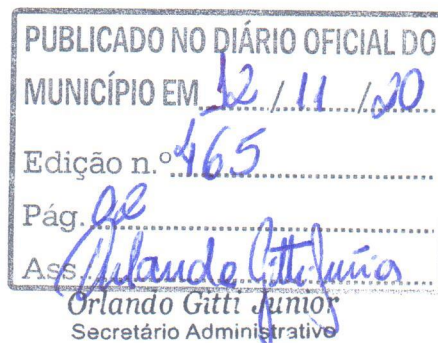 PUBLICADO NO DIÁRIO OFICIAL DO
MUNICÍPIO EM 12 / 11 / 20
Edição n.º 465
Pág. 02
Ass. Orlando Gitti Junior
Orlando Gitti Junior
Secretário Administrativo